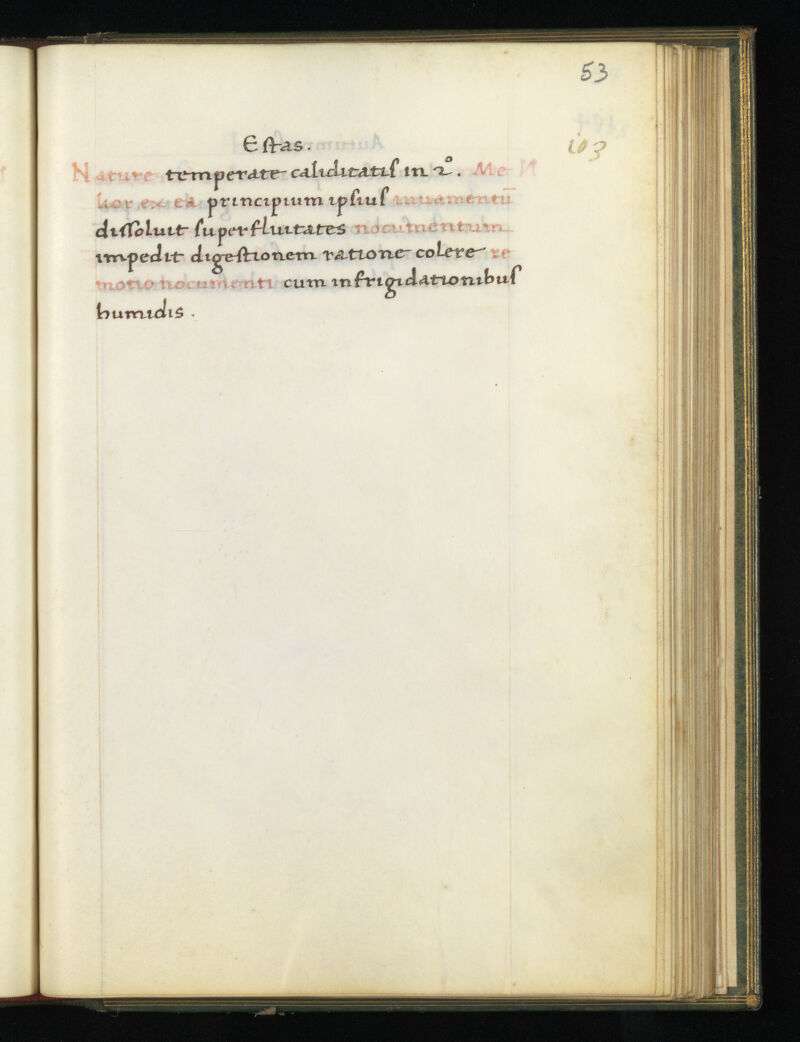 53
103
Estas.
Nature temperate caliditatis in 2°. Me
lior ex ea principium ipsius iuuamentū
dissoluit superfluitates nocumentum
impedit digestionem ratione colere re
motio nocumenti cum infrigidationibus
humidis.